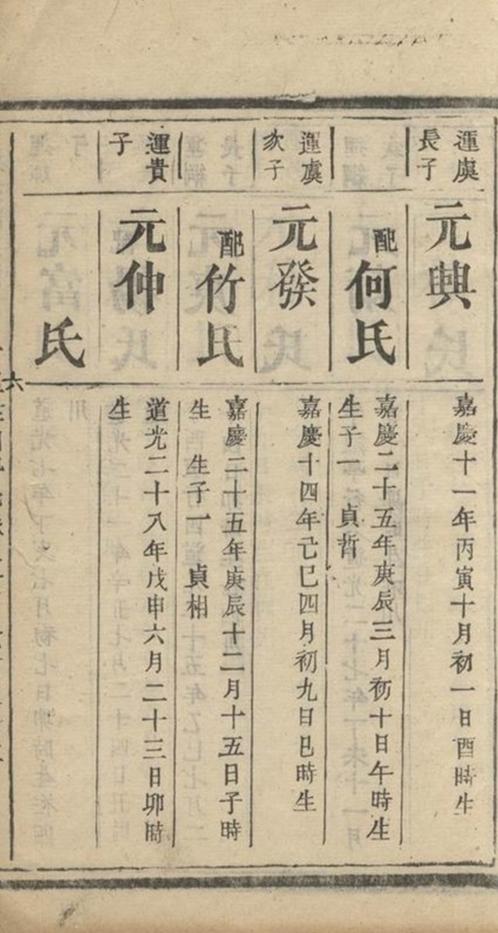 運虞
長子
元興
嘉慶十一年丙寅十月初一日酉時生
配何氏
嘉慶二十五年庚辰三月初十日午時生
生子一 貞哲
運虞
次子
元發
嘉慶十四年己巳四月初九日巳時生
配竹氏
嘉慶二十五年庚辰十二月十五日子時
生 生子一 貞相
運貴
子
元仲
道光二十八年戊申六月二十三日卯時
生
氏
六